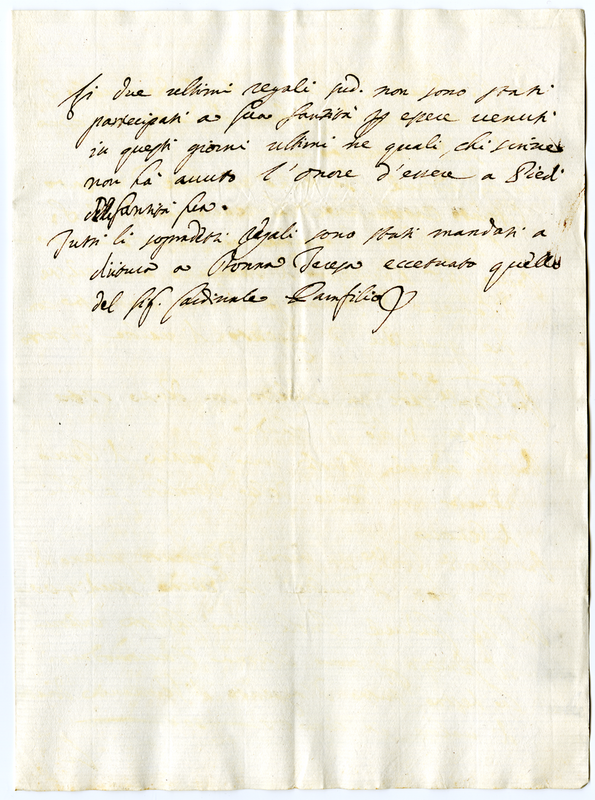 Li due ultimi regali sud. non sono stati
partecipati a Sua Santità p essere venuti
in questi giorni ultimi ne quali, chi scrive
non hà avuto l'onore d'essere a Piedi
Santità Sua.
Tutti li sopradetti Regali sono stati mandati a
a Donna Teresa eccettuato quello
del Sig. Cardinale Panfilio